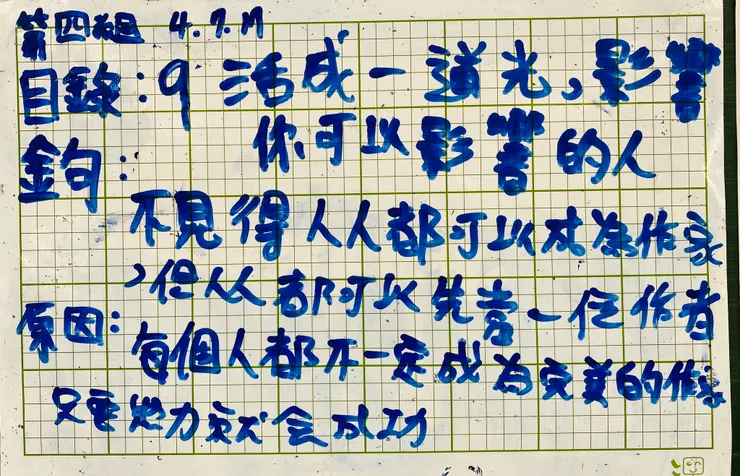 第四組 4.7.M
目錄:9 活成一道光,影響
你可以影響的人
金句:
不見得人人都可以成為作家
,但人人都可以先當一位作者
原因:每個人都不一定成為完美的作家
只要努力就會成功